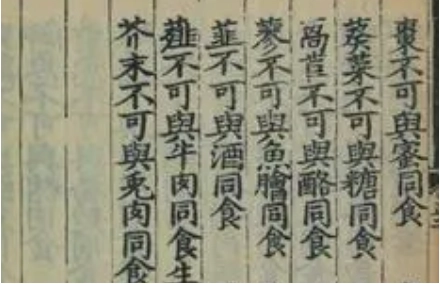 棗不可與蜜同食
葵菜不可與糖同食
萵苣不可與酪同食
蓼不可與魚膾同食
韭不可與酒同食
薤不可與牛肉同食生
芥末不可與兔肉同食